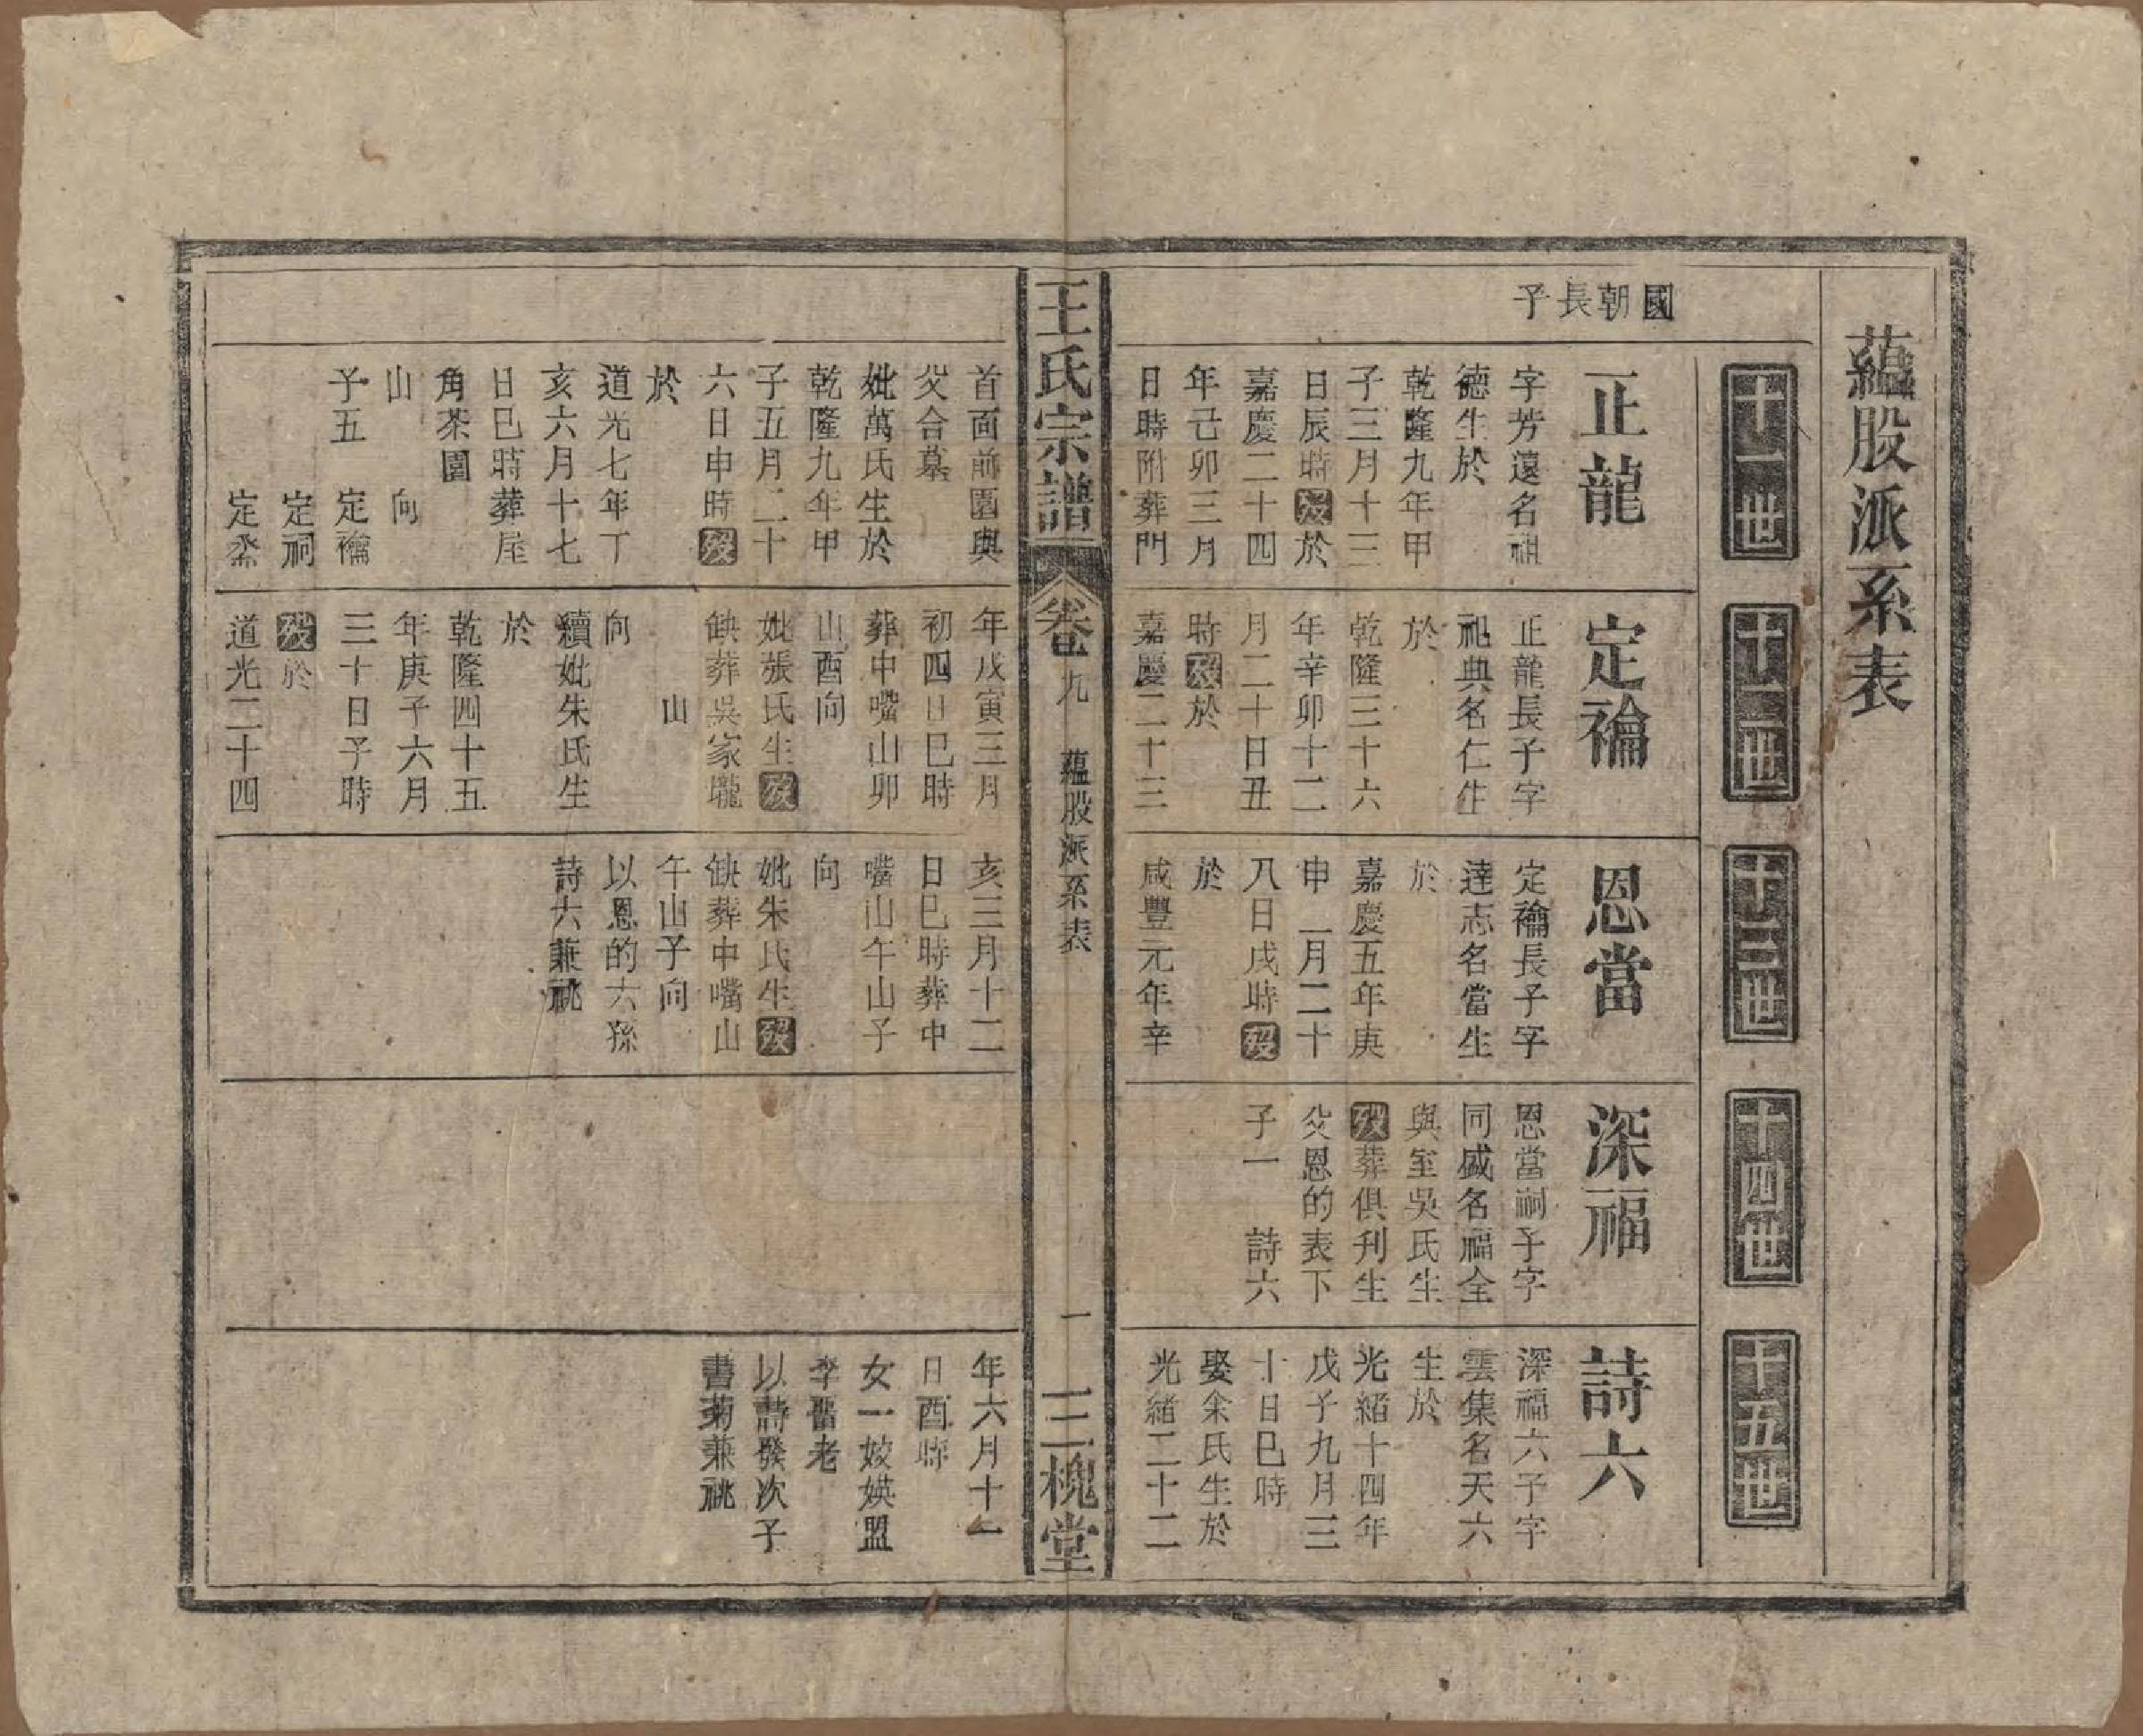 蘊股派系表
十一世
十二世
十三世
十四世
十五世
國朝長子
正龍
字芳遠名祖
德生於
乾隆九年甲
子三月十三
日辰時歿於
嘉慶二十四
年己卯三月
日時附葬門
定禴
正龍長子字
祀典名仁生
於
乾隆三十六
年辛卯十二
月二十日丑
時歿於
嘉慶二十三
恩當
定禴長子字
達志名當生
於
嘉慶五年庚
申二月二十
八日戌時歿
於
咸豐元年辛
深福
恩當嗣子字
同盛名福全
與室吳氏生
歿葬俱列生
父恩的表下
子一 詩六
詩六
深福六子字
雲集名天六
生於
光緒十四年
戊子九月三
十日巳時
娶余氏生於
光緒二十二
王氏宗譜
卷九
蘊股派系表
一
三槐堂
首面前園與
父合墓
妣萬氏生於
乾隆九年甲
子五月二十
六日申時歿
於
道光七年丁
亥六月十七
日巳時葬屋
角茶園
山 向
子五 定禴
定祠
定烝
年戊寅三月
初四日巳時
葬中嘴山卯
山酉向
妣張氏生歿
缺葬吳家壠
山
向
續妣朱氏生
於
乾隆四十五
年庚子六月
三十日子時
歿於
道光二十四
亥三月十二
日巳時葬中
嘴山午山子
向
妣朱氏生歿
缺葬中嘴山
午山子向
以恩的六孫
詩六兼祧
年六月十一
日酉時
女一姣媖盟
李晋老
以詩發次子
書菊兼祧